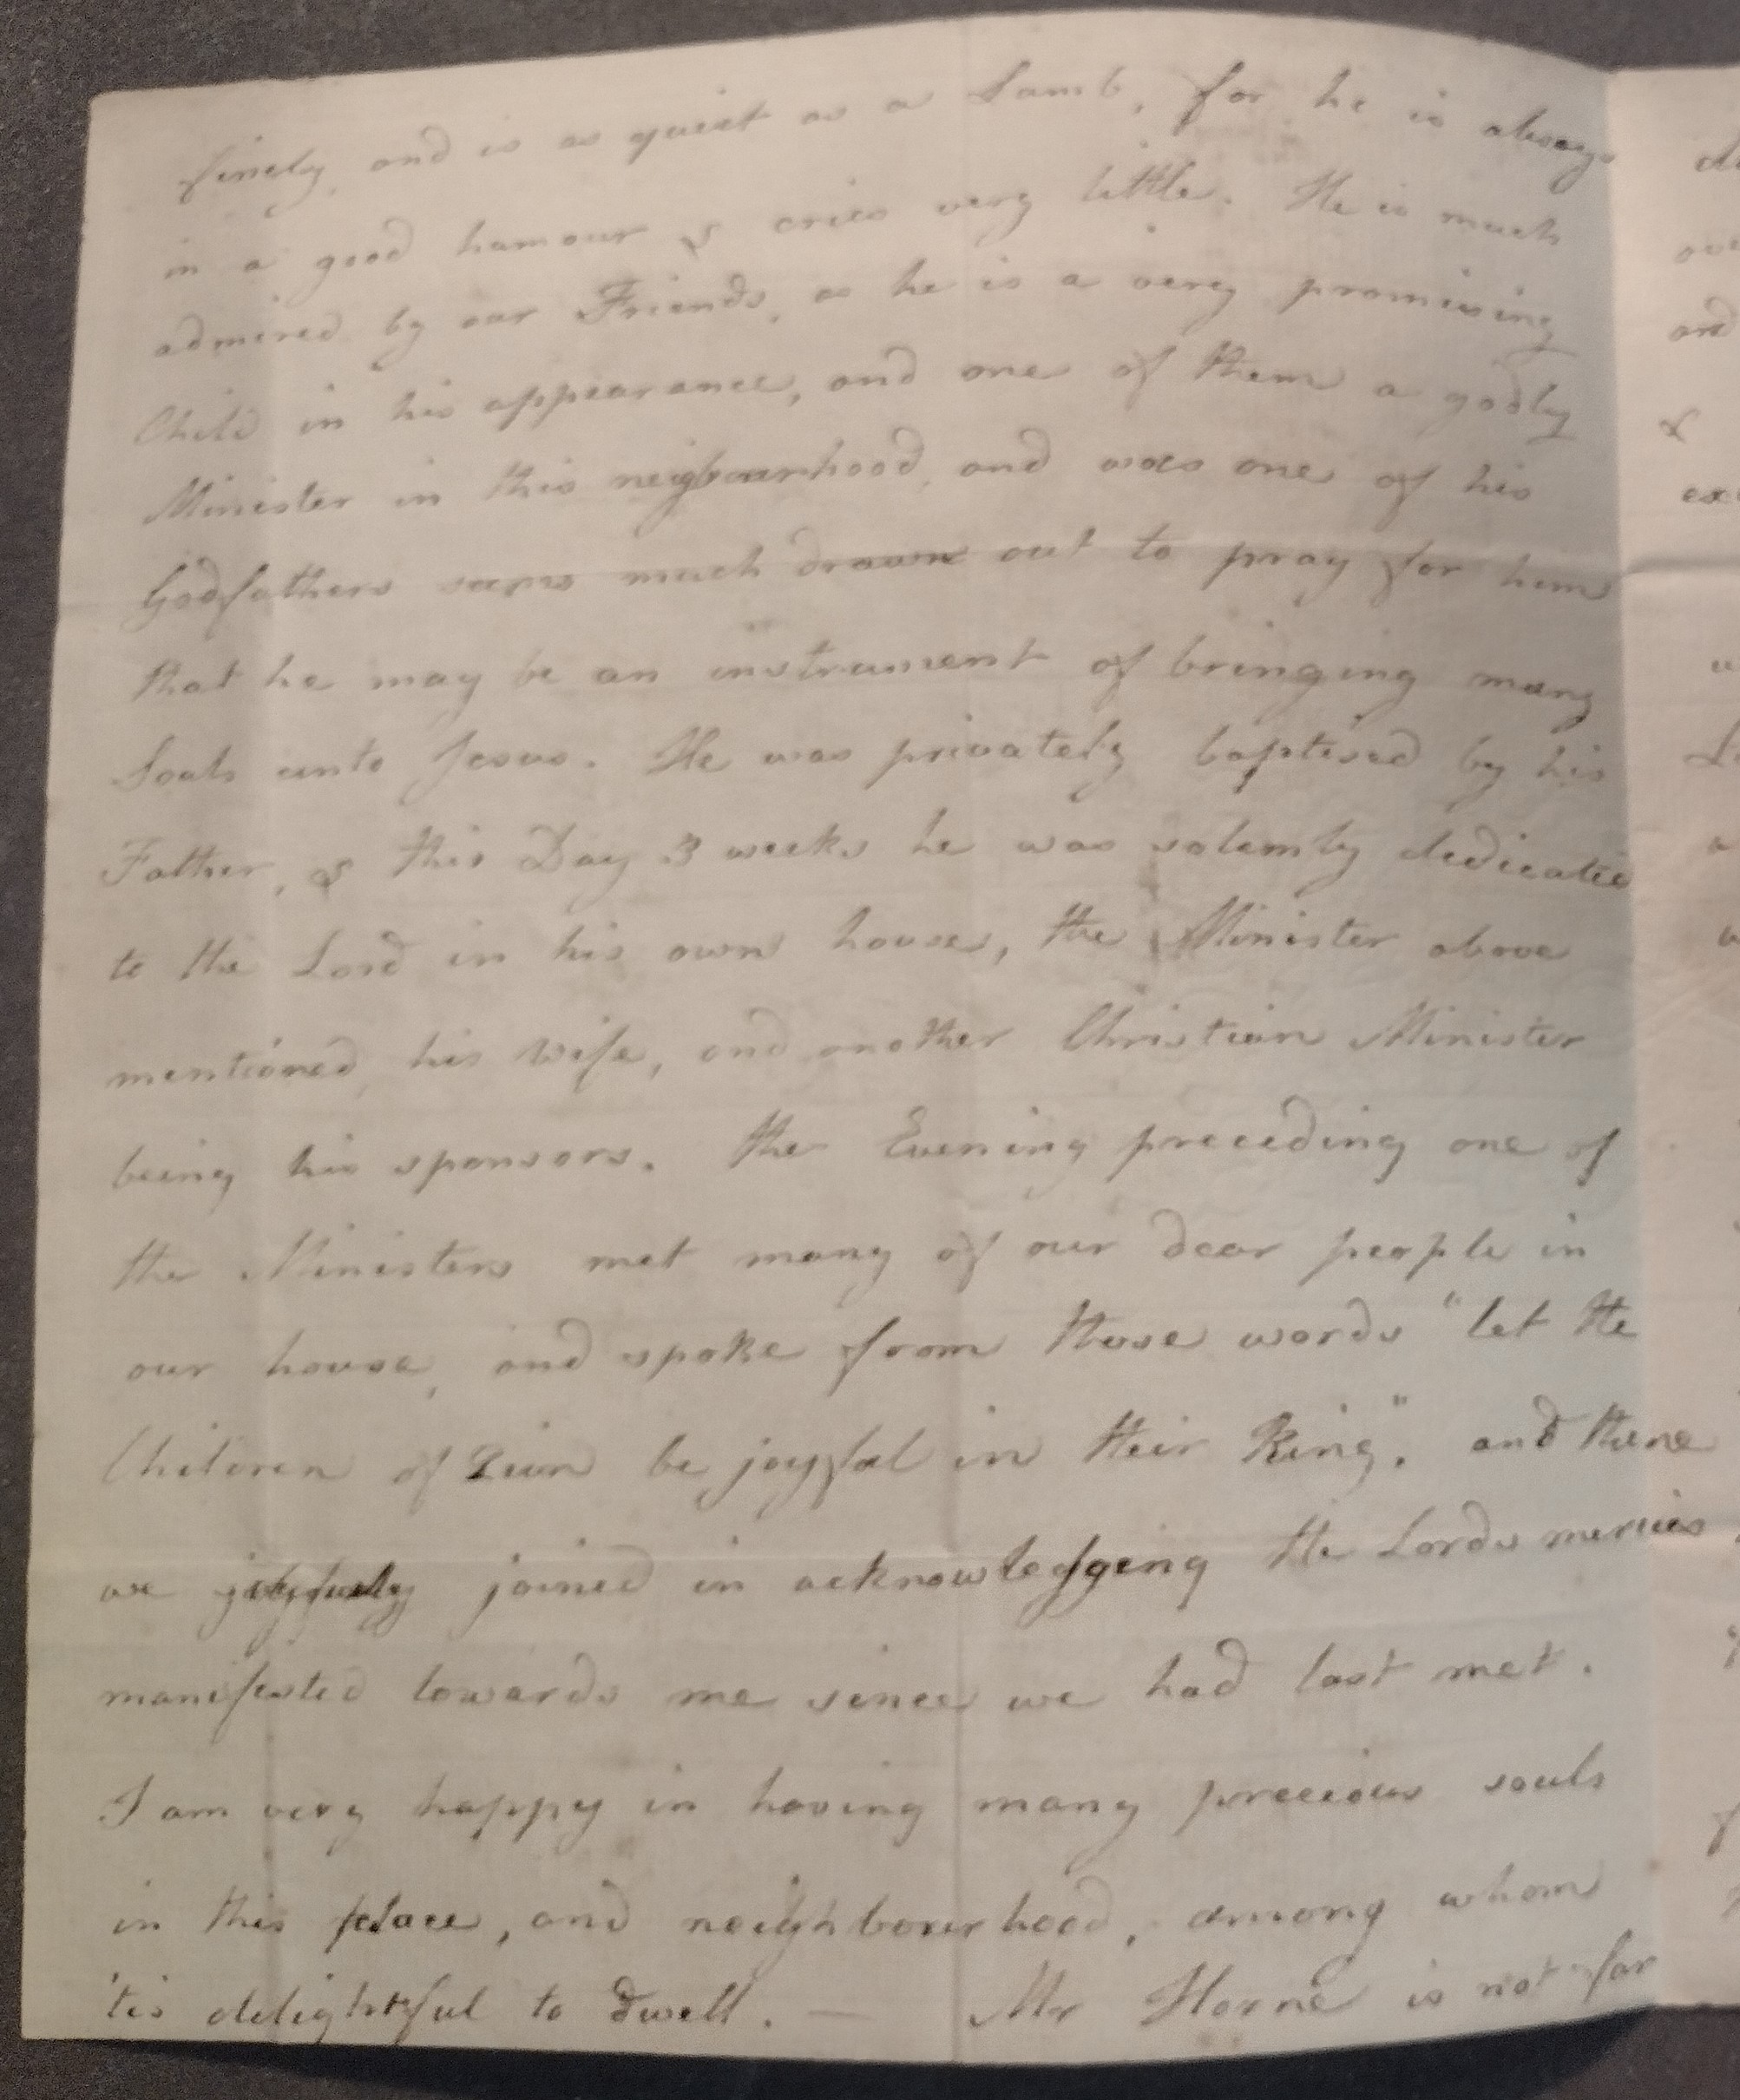 finely, and is as quiet as a Lamb, for he is always
in a good humour & cries very little. He is much
admired by our Friends, as he is a very promising
Child in his appearance, and one of them a godly
Minister in this neigbourhood, and was one of his
Godfathers seems much drawn out to pray for him
that he may be an instrument of bringing many
Souls unto Jesus. He was privately baptised by his
Father, & this Day 3 weeks he was solemly dedicated
to the Lord in his own house, the Minister above
mentioned, his Wife, and another Christian Minister
being his sponsors. the Evening preceding one of
the Ministers met many of our dear people in
our house, and spoke from those words "let the
Children of Zion be joyful in their King". and there
we joyfully joined in acknowledgeing the Lords mercies
manifested towards me since we had last met.
I am very happy in having many precious souls
in this place, and neighbourhood, among whom
'tis delightful to dwell. — Mr Horne is not far